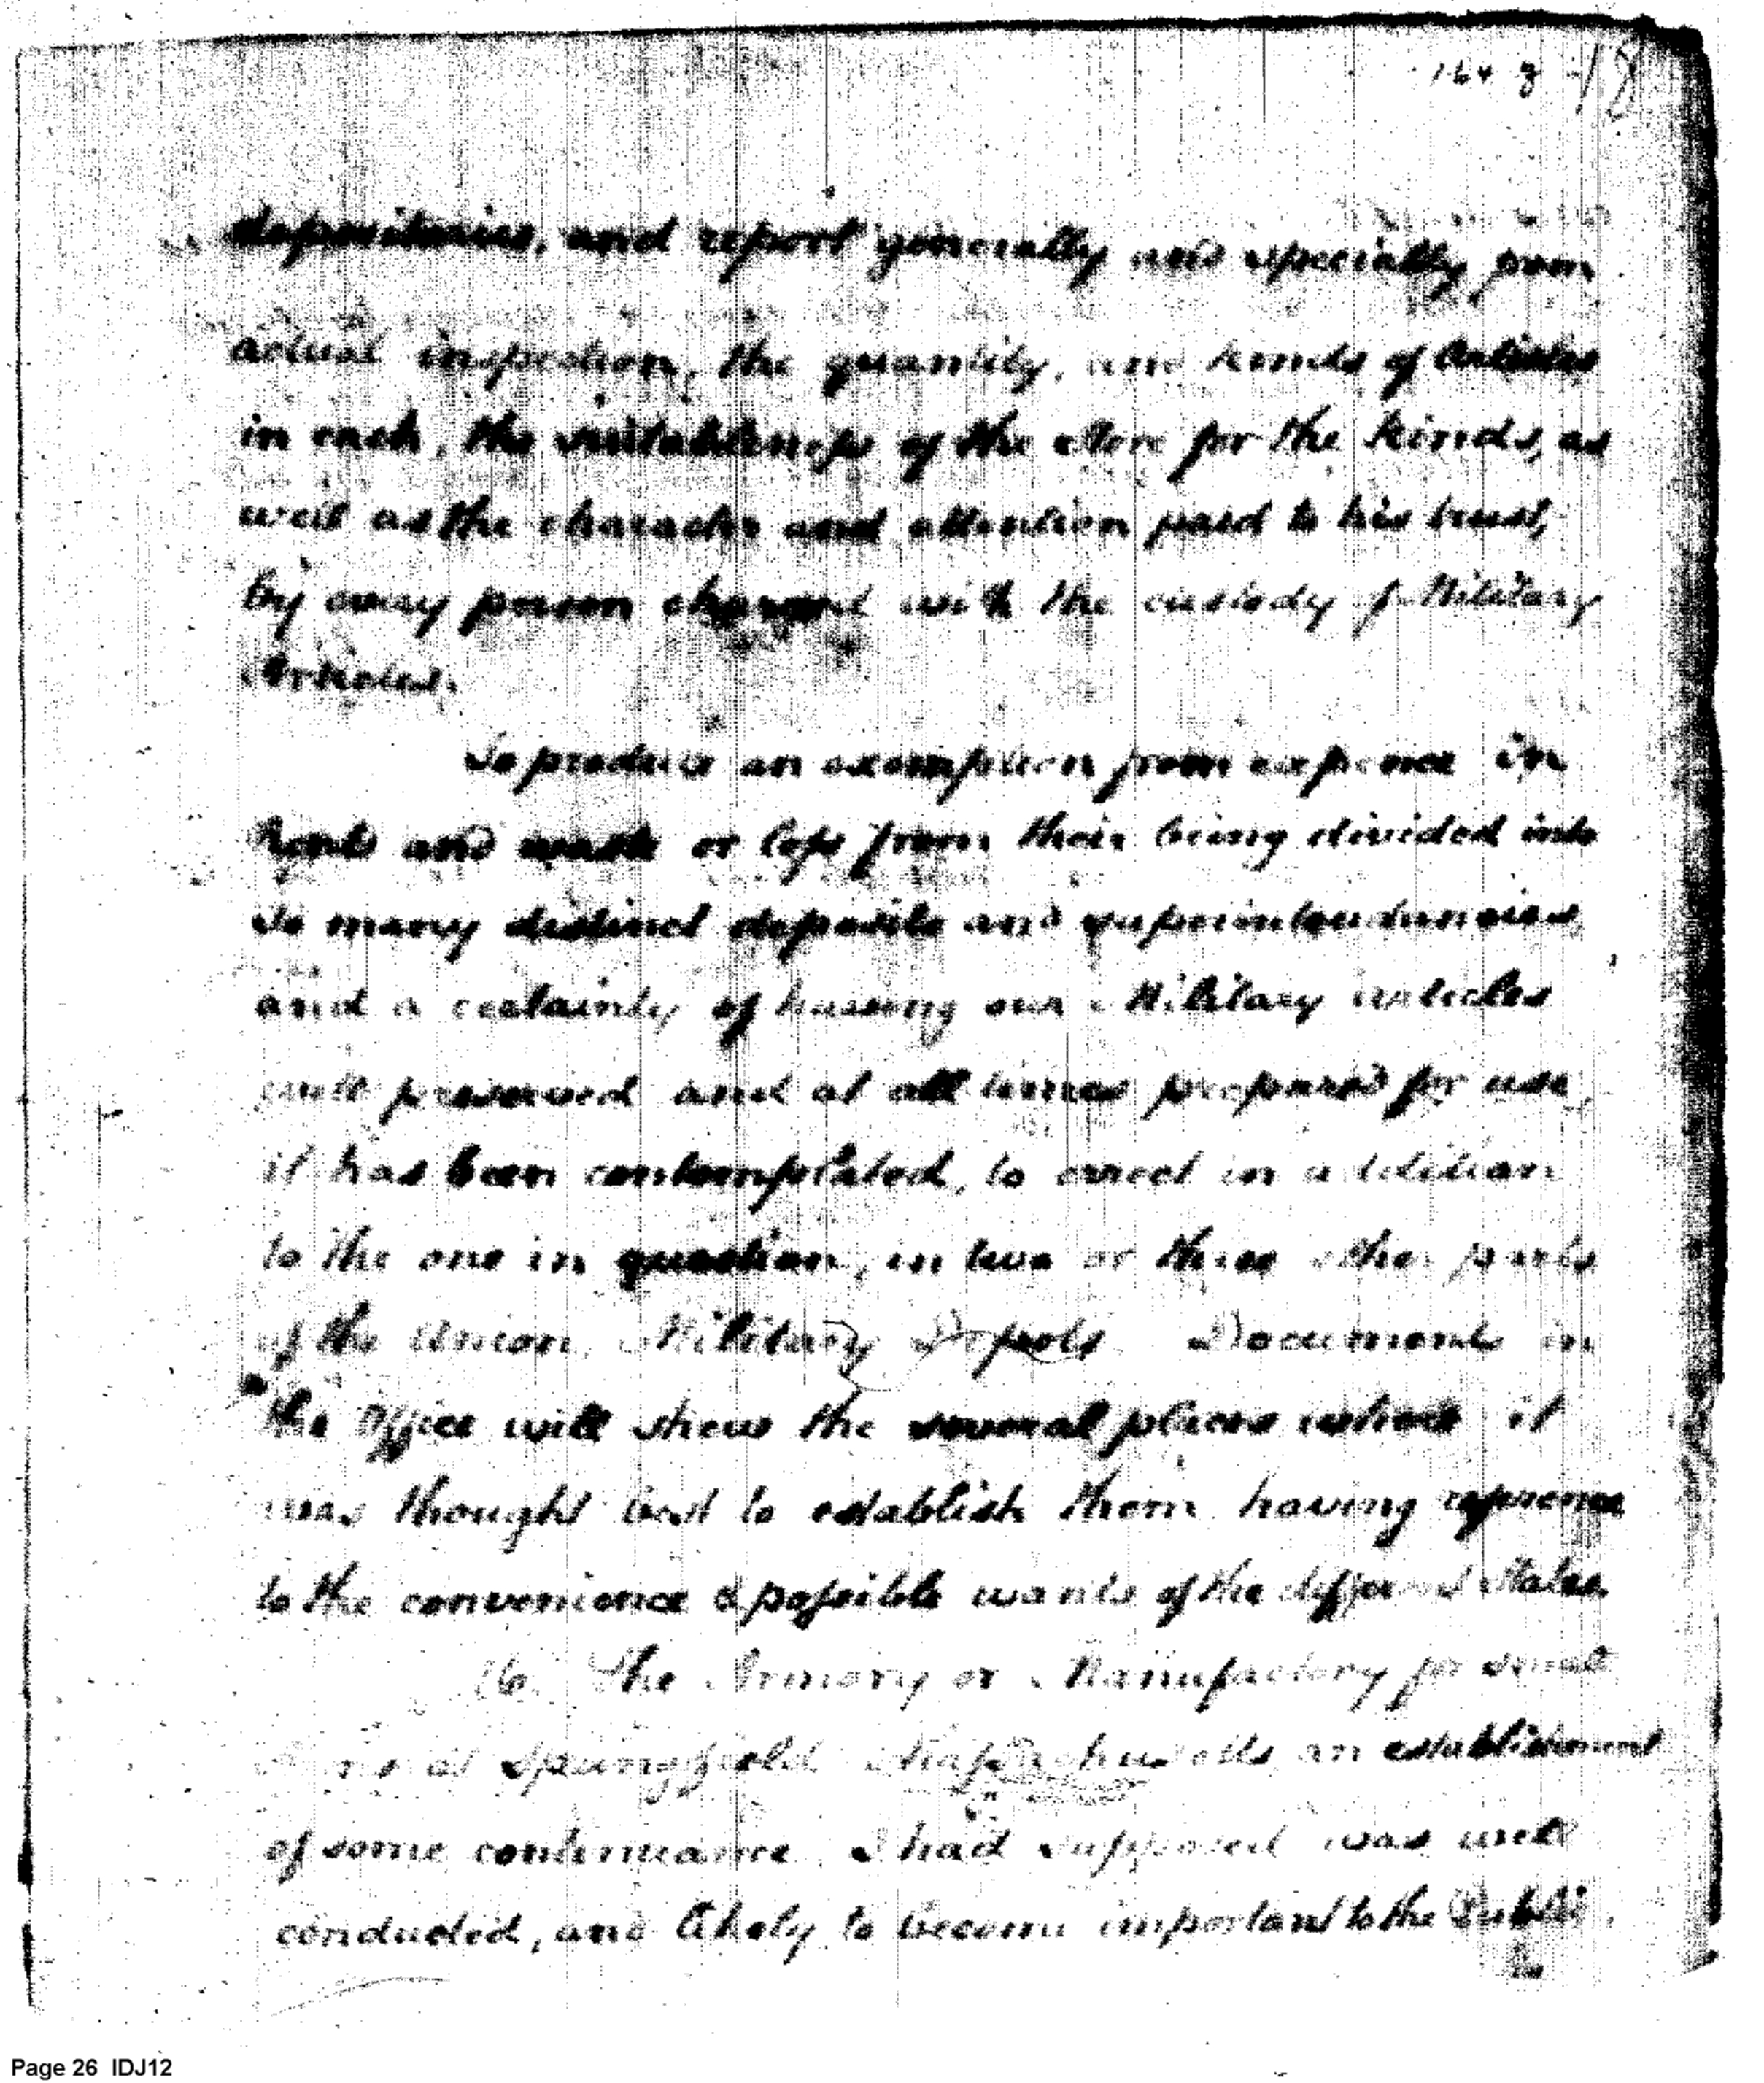 18
depositories, and report generally and specially from
actual inspection, the quantity, and kinds of Articles
in each, the suitableness of the store for the kinds, as
well as the character and attention paid to his trust,
by every person charged with the custody of Military
Articles.
To produce an exemption from expence in
Rents and waste or loss from their being divided into
so many distinct deposits and superintendencies,
and a certainty of having our Military articles
well preserved and at all times prepared for use,
it has been contemplated, to erect in addition
to the one in question, in two or three other parts
of the Union, Military Depots. Documents in
the Office will shew the several places where it
was thought best to establish them having reference
to the convenience & possible wants of the different States.
The Armory or Manufactory for small
Arms at Springfield Massachusetts an establishment
of some continuance, I had supposed was well
conducted, and likely to become important to the Public.
Page 26 IDJ12